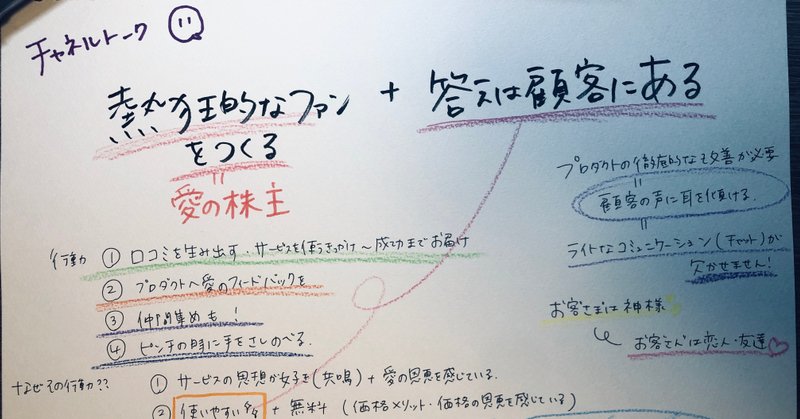 チャネルトーク
熱狂的なファン + 答えは顧客にある
をつくる
=
愛の株主
行動 ① 口コミを生み出す・サービスを使うきっかけ〜成功までお届け
② プロダクトへ愛のフィードバックを
③ 仲間集めも!
④ ピンチの時に手をさしのべる.
なぜその行動??
① サービスの思想が好き(共鳴) + 愛の恩恵を感じている.
② 使いやすい + 無料 (価格メリット・価格の恩恵を感じている)
プロダクトの徹底的な改善が必要
=
顧客の声に耳を傾ける.
=
ライトなコミュニケーション(チャット)が
欠かせません!
お客さまは神様
お客さんは恋人・友達